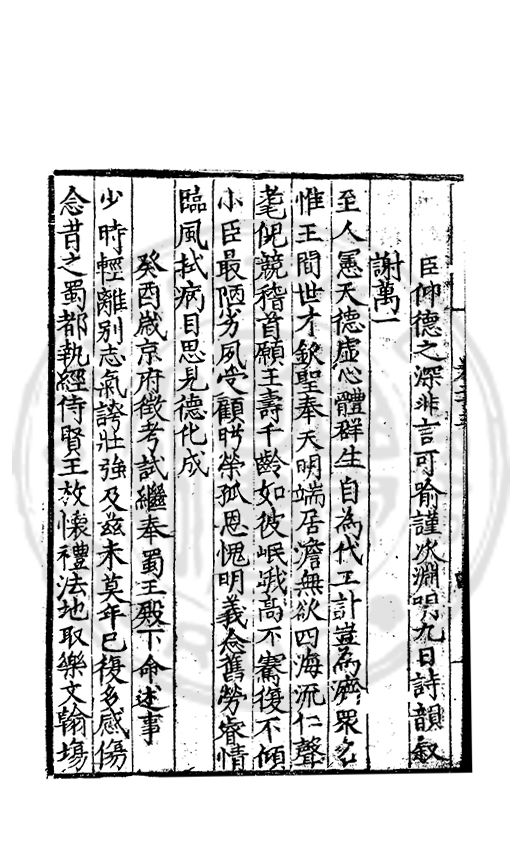 臣仰德之深非言可喻謹次淵明九日詩韻叙
謝萬一
至人憲天德虛心體群生自為代工計豈為濟眾名
惟王間世才欽聖奉天明端居澹無欲四海流仁聲
耄倪競稽首願王壽千齡如彼岷峨高不騫復不傾
小臣最陋劣夙受顧眄榮孤恩愧明義念舊勞睿情
臨風拭病目思見德化成
癸酉歲京府徵考試繼奉蜀王殿下命述事
少時輕離別志氣誇壯強及茲未莫年已復多感傷
念昔之蜀都執經侍賢王放懷禮法地取樂文翰場